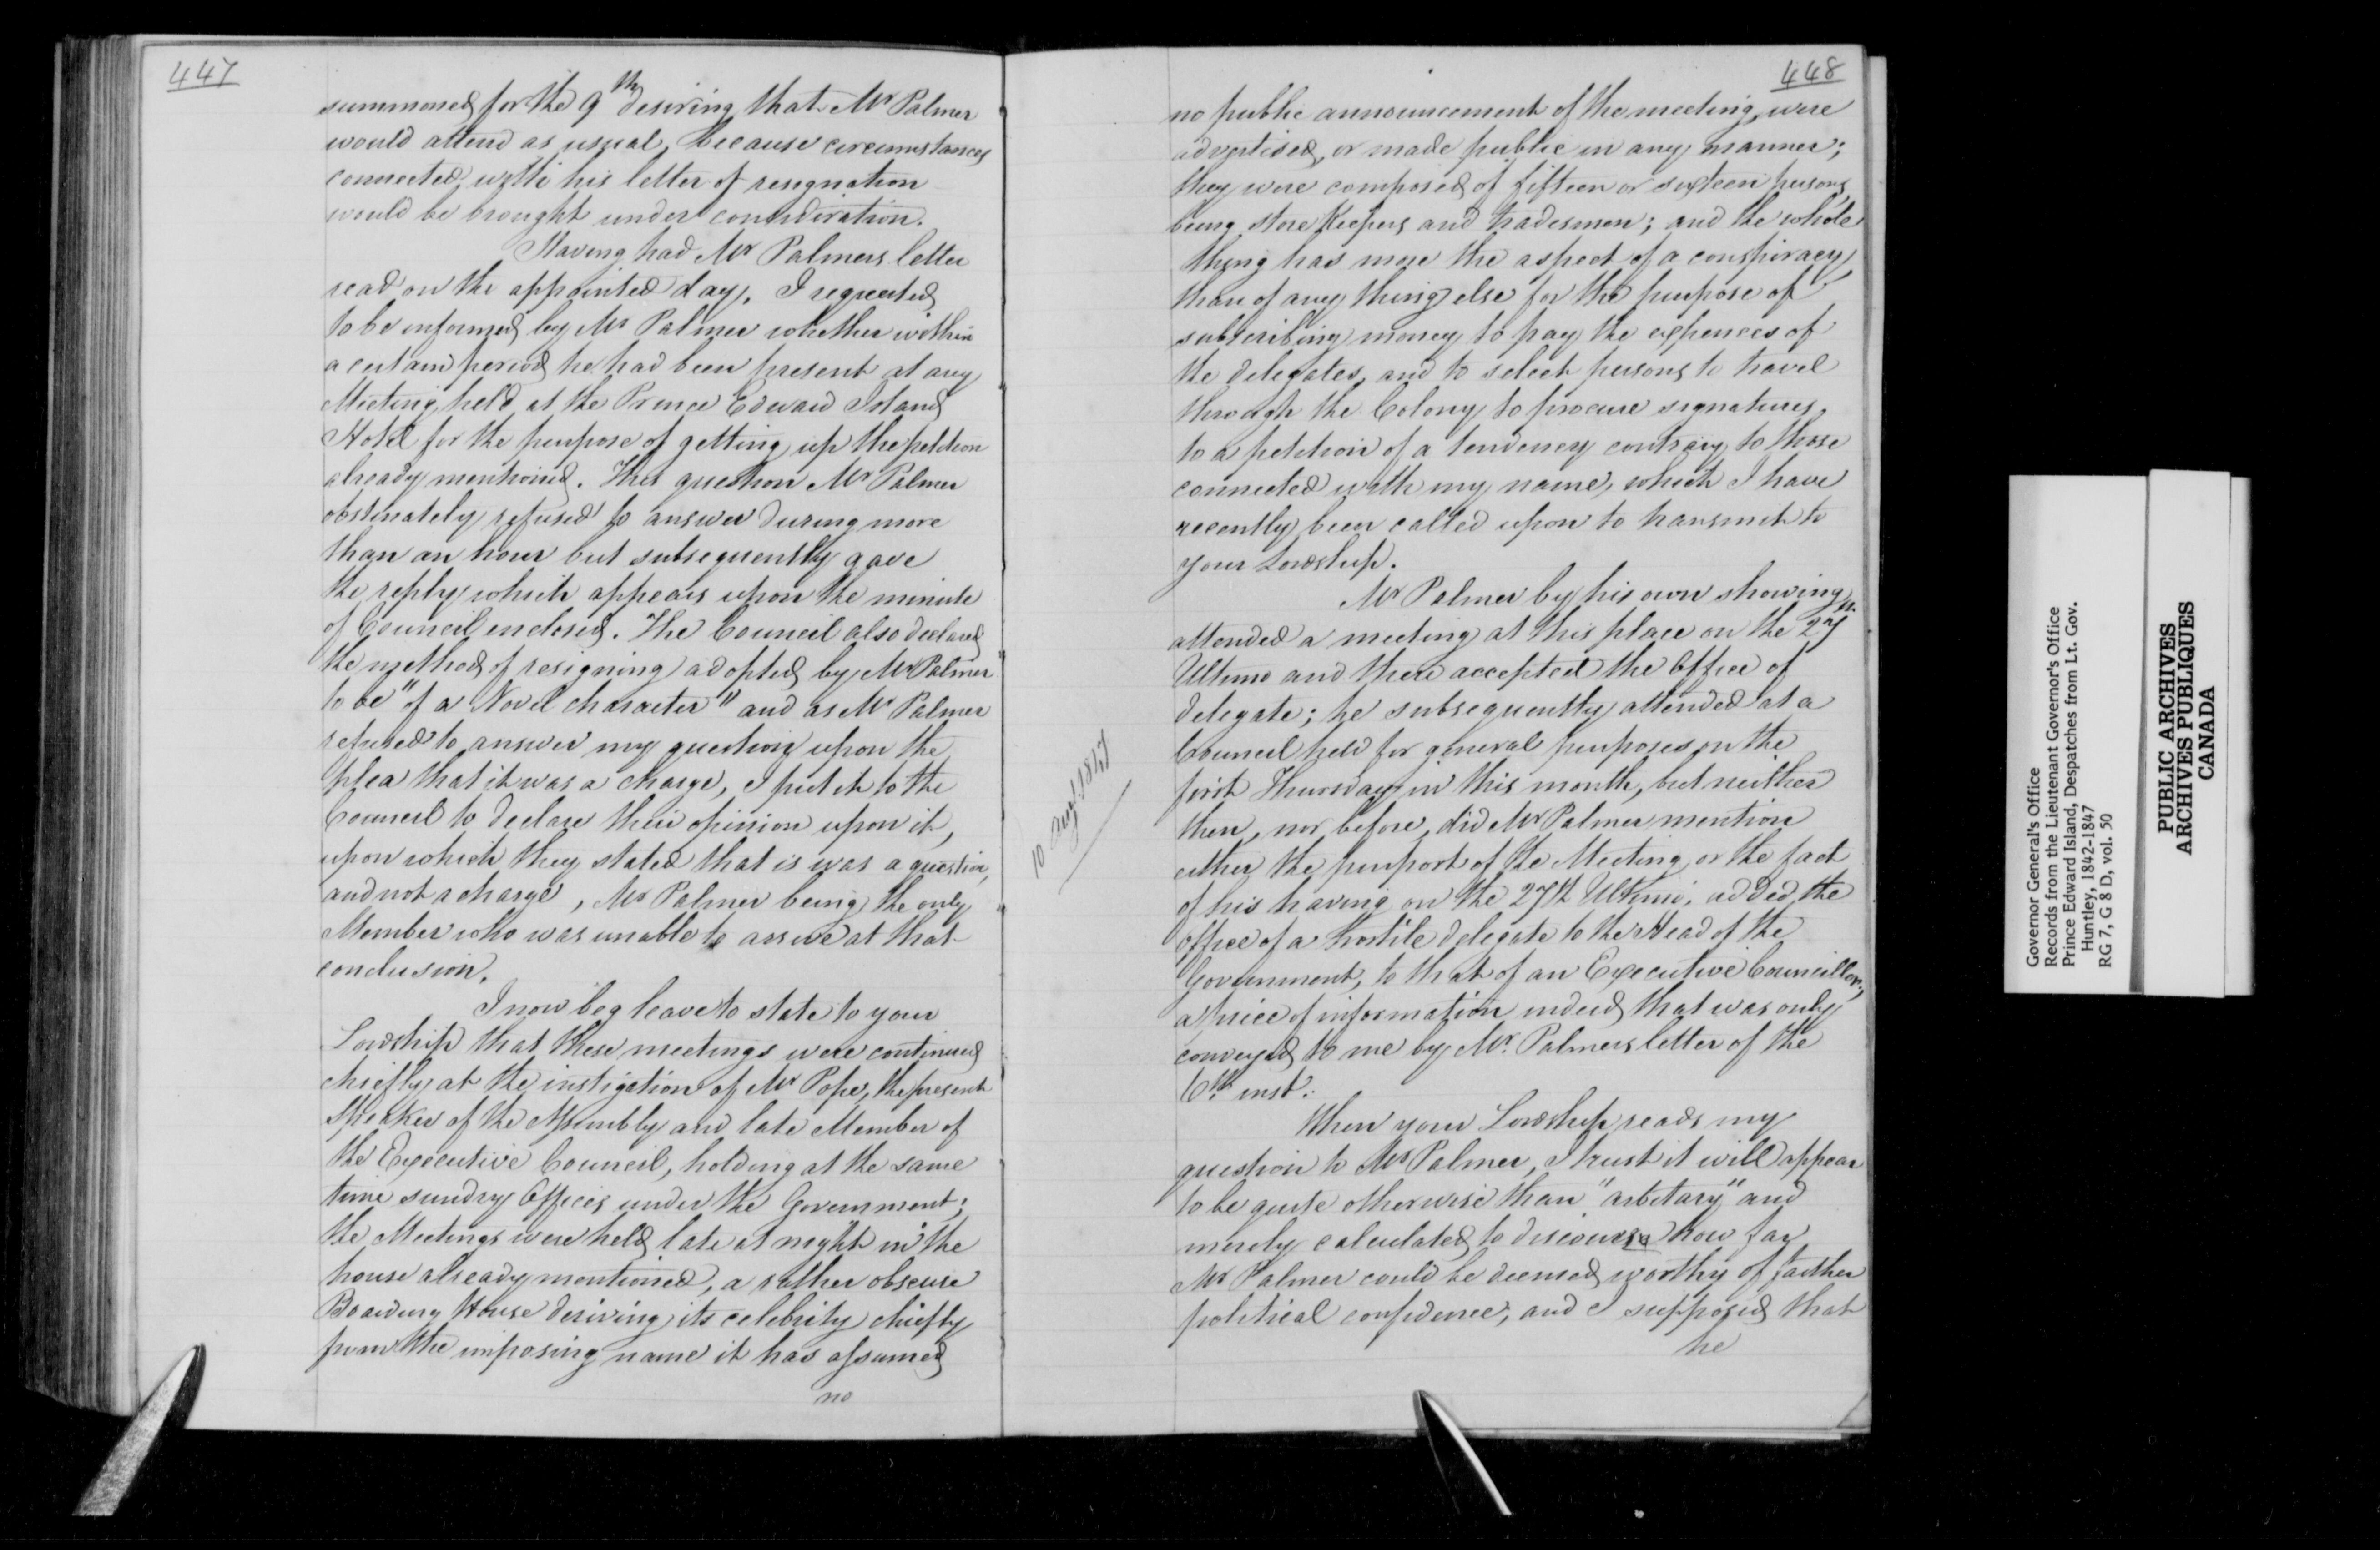 447
summoned for the 9th desiring that Mr Palmer
would attend as usual, because circumstances
connected with his letter of resignation
would be brought under consideration.
Having had Mr Palmers letter
read on the appointed day, I requested
to be informed by Mr Palmer whether within
a certain period he had been present at any
Meeting held at the Prince Edward Island
Hotel for the purpose of getting up the petition
already mentioned. This question Mr Palmer
obstinately refused to answer during more
than an hour but subsequently gave
the reply which appears upon the minute
of Council enclosed. The Council also declared
the method of resigning adopted by Mr Palmer
to be "of a Novel character" and as Mr Palmer
refused to answer my question upon the
plea that it was a charge, I put it to the
Council to declare their opinion upon it,
upon which they stated that is was a question,
and not a charge, Mr Palmer being the only
Member who was unable to arrive at that
conclusion.
I now beg leave to state to your
Lordship that these meetings were continued
chiefly at the instigation of Mr Pope, the present
Speaker of the Assembly and late Member of
the Executive Council, holding at the same
time sundry Offices under the Government;
the Meetings were held late at night in the
house already mentioned, a rather obscure
Boarding House deriving its celebrity chiefly
from the imposing name it has assumed
no
10 Augt 1847
448
no public announcement of the meeting were
advertised, or made public in any manner;
they were composed of fifteen or sixteen persons,
being store Keepers and tradesmen; and the whole
thing has more the aspect of a conspiracy
than of any thing else for the purpose of
subscribing money to pay the expences of
the delegates, and to select persons to travel
through the Colony to procure signatures
to a petition of a tendency contrary to those
connected with my name, which I have
recently been called upon to transmit to
your Lordship.
Mr Palmer by his own showing
attended a meeting at this place on the 27th
Ultimo and there accepted the Office of
delegate; he subsequently attended at a
Council held for general purposes on the
first Thursday in this month, but neither
then, nor before, did Mr Palmer mention
either the purport of the Meeting or the fact
of his having on the 27th Ultimo, added the
office of a hostile delegate to the Head of the
Government, to that of an Executive Councillor;
a piece of information indeed that was only
conveyed to me by Mr. Palmers letter of the
6th inst:
When your Lordship reads my
question to Mr Palmer, I trust it will appear
to be quite otherwise than "arbitary" and
merely calculated to how far
Mr Palmer could be deemed worthy of farther
political confidence, and I supposed that
he
Governor General's Office
Records from the Lieutenant Governor's Office
Prince Edward Island, Despatches from Lt. Gov.
Huntley, 1842-1847
RG 7, G 8 D, vol. 50
PUBLIC ARCHIVES
ARCHIVES PUBLIQUES
CANADA